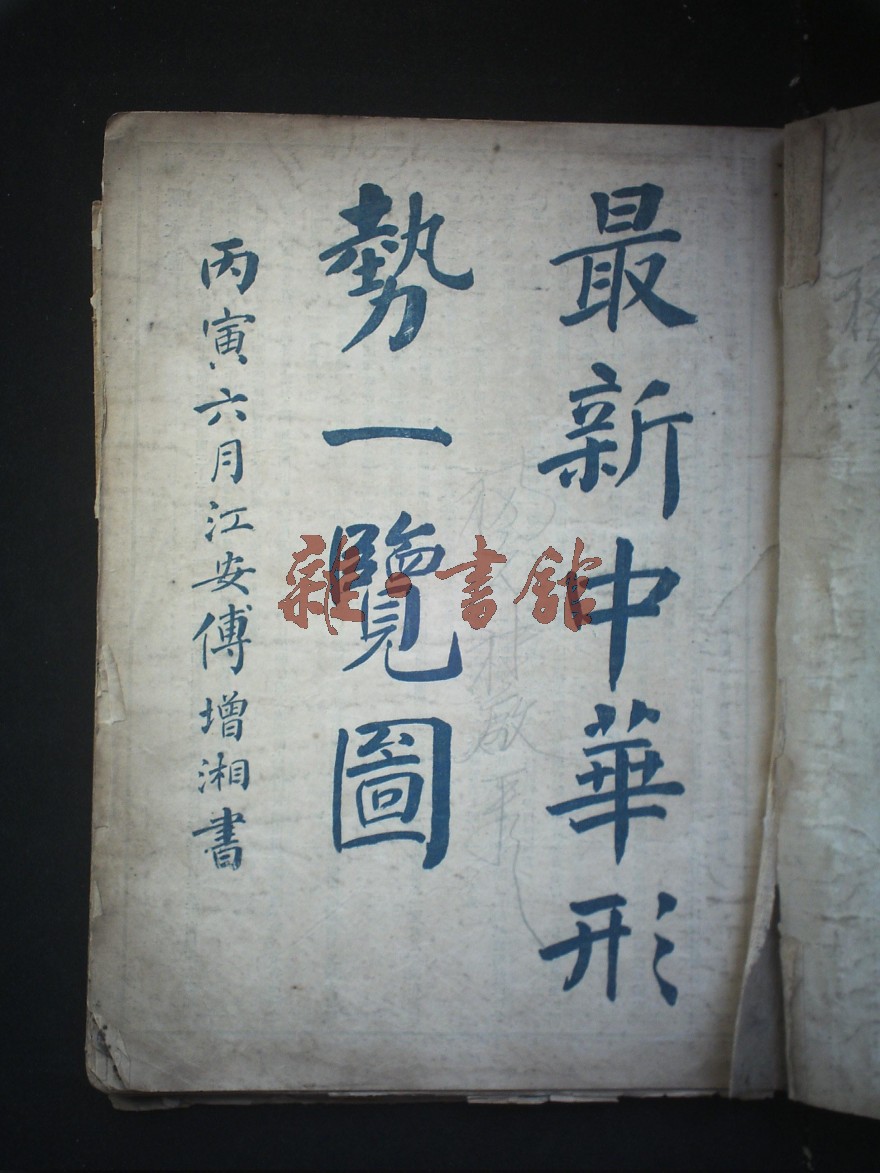 最新中華形
勢一覽圖
丙寅六月江安傅增湘書
雜·書館